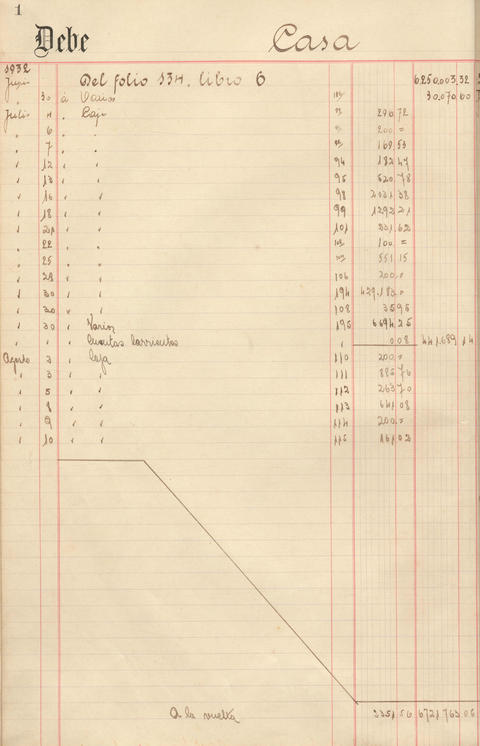 1
Debe Casa
1932
Junio Del folio 134, libro 6 6.250.003,32
" 30 á Varios 30.070,60
Julio 4 " Caja 290,72
" 6 " " 200 =
" 7 " " 169,53
" 12 " " 94 182,47
" 13 " " 95 520,78
" 16 " " 98 2031,38
" 18 " " 99 1292,21
" 21 " " 101 231,62
" 22 " " 100 =
" 25 " " 551,15
" 28 " " 106 200 "
" 30 " " 194
" 30 " " 108 35,95
" 30 " Varios 195 6694,25
" " " Cuentas Corrientes " 0,08 441.689,14
Agosto 2 " Caja 110 200 "
" 3 " " 111 885,70
" 5 " " 112 263,70
" 8 " " 113 641,08
" 9 " " 114 200 "
" 10 " " 115 161,02
A la vuelta 2351,56 6721,763,06